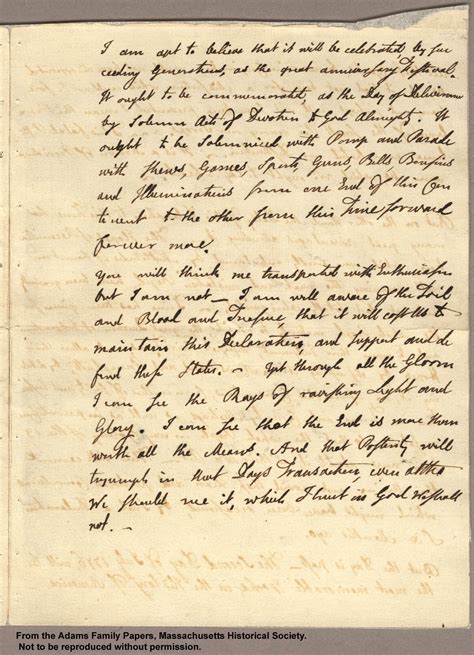 I am apt to believe that it will be celebrated, by suc
ceeding Generations, as the great anniversary Festival.
It ought to be commemorated, as the Day of Deliverance
by Solemn Acts of Devotion to God Almighty. It
ought to be Solemnized with Pomp and Parade
with Shews, Games, Sports, Guns, Bells, Bonfires
and Illuminations from one End of this Con
tinent to the other from this Time forward
forever more.
You will think me transported with Enthusiasm
but I am not. — I am well aware of the Toil
and Blood and Treasure, that it will cost Us to
maintain this Declaration, and support and de
fend these States. — Yet through all the Gloom
I can see the Rays of ravishing Light and
Glory. I can see that the End is more than
worth all the Means. And that Posterity will
tryumph in that Days Transaction, even altho
We should rue it, which I trust in God We shall
not. —
From the Adams Family Papers, Massachusetts Historical Society.
Not to be reproduced without permission.